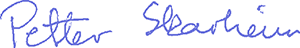 Petter Skarheim